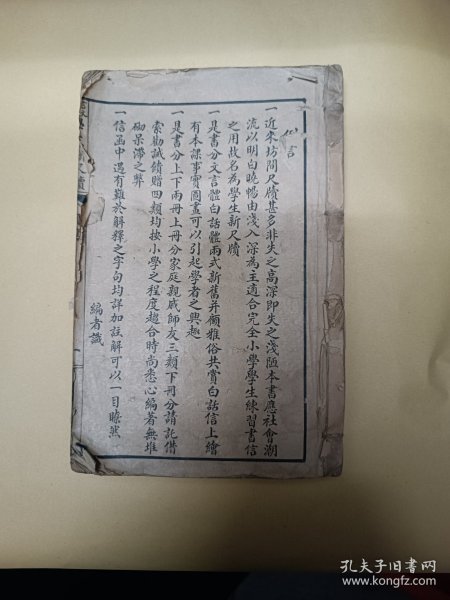 一近來坊間尺牘甚多非失之高深即失之淺陋本書應社會潮
流以明白曉暢由淺入深為主適合完全小學學生練習書信
之用故名為學生新尺牘
一是書分文言體白話體兩式新舊并顧雅俗共賞白話信上繪
有本課事實圖畫可以引起學者之興趣
一是書分上下兩冊上冊分家庭親戚師友三類下冊分請託借
索勸誡餽贈四類均按小學之程度趨合時尚悉心編著無堆
砌呆滯之弊
一信函中遇有難於解釋之字句均詳加註解可以一目瞭然
編者識
孔夫子旧书网
www.kongfz.com